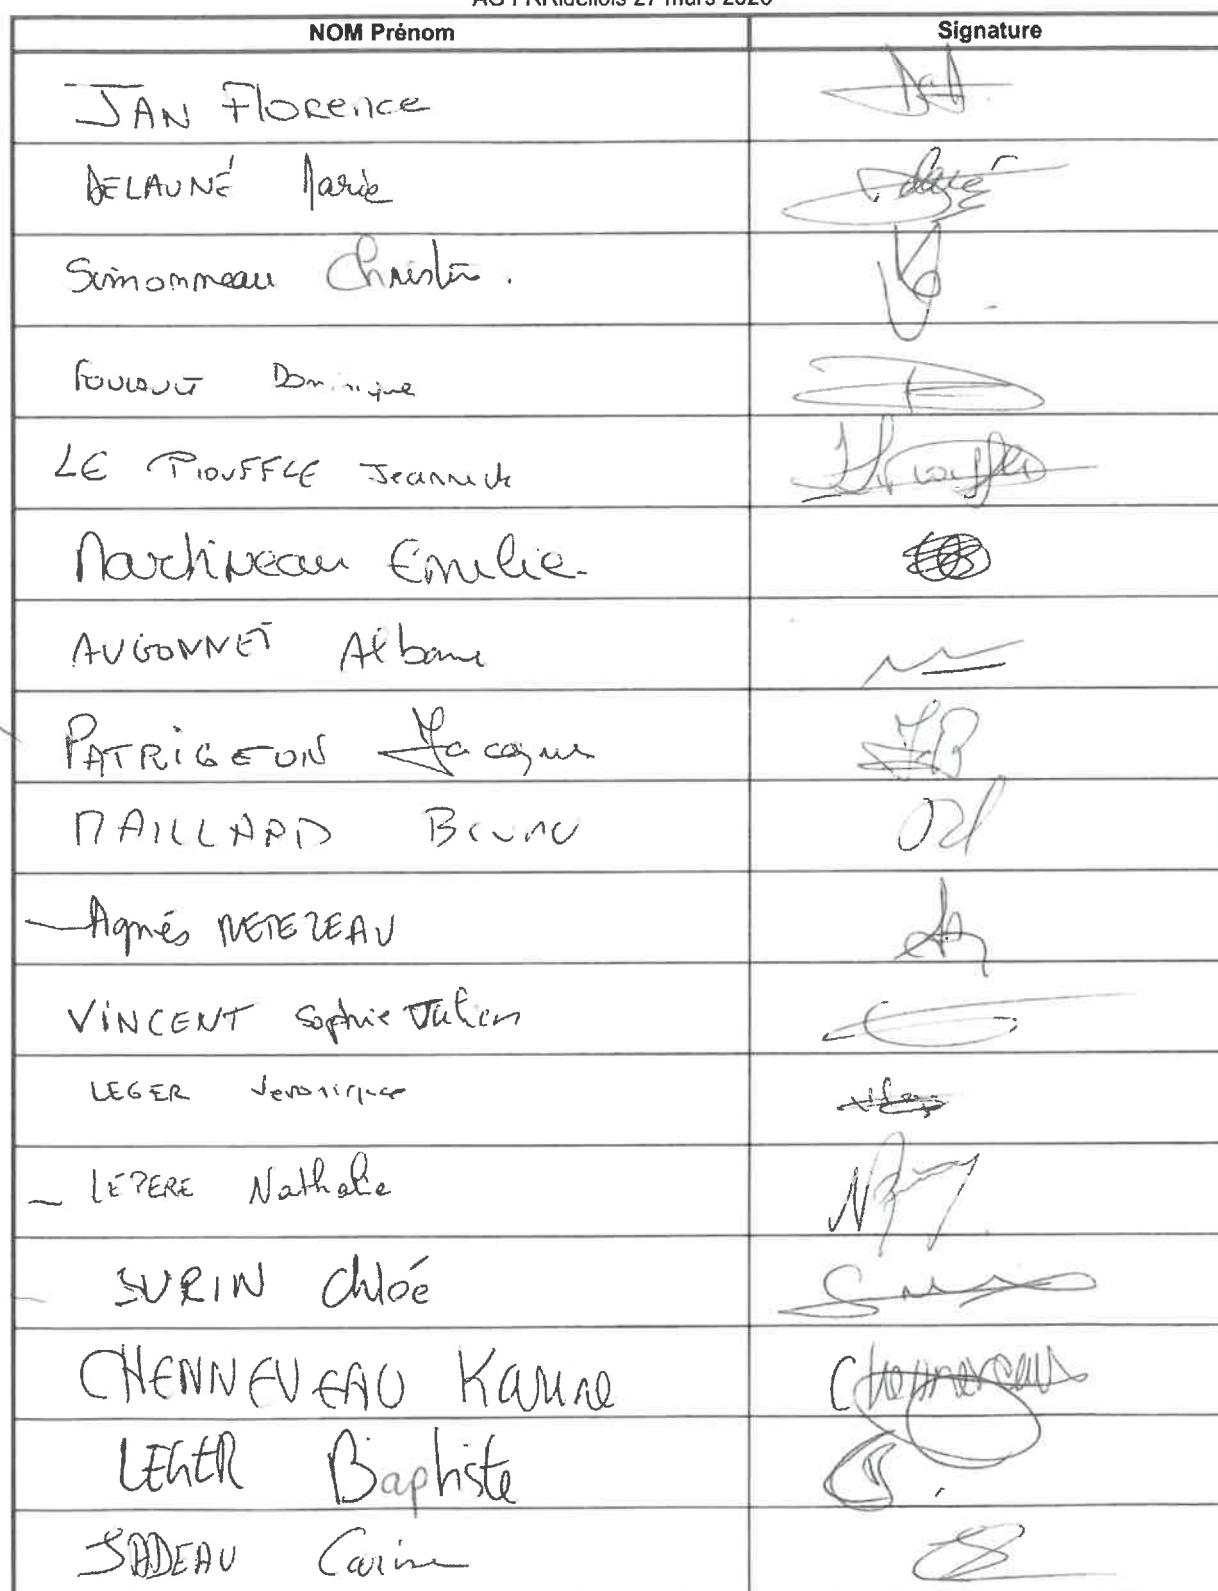 NOM Prénom Signature
JAN Florence
DELAUNÉ Marie
Simonneau Christin.
FOUCAULT Dominique
LE PIOUFFLE Jeannick
Martineau Emilie
AUGONNET Albane
PATRIGEON Jacques
MAILLARD Bruno
Agnés METEZEAU
VINCENT Sophie Julien
LEGER Veronique
LEPERE Nathalie
SURIN Chloé
CHENNEVEAU Karine
LEGER Baptiste
JADEAU Carine